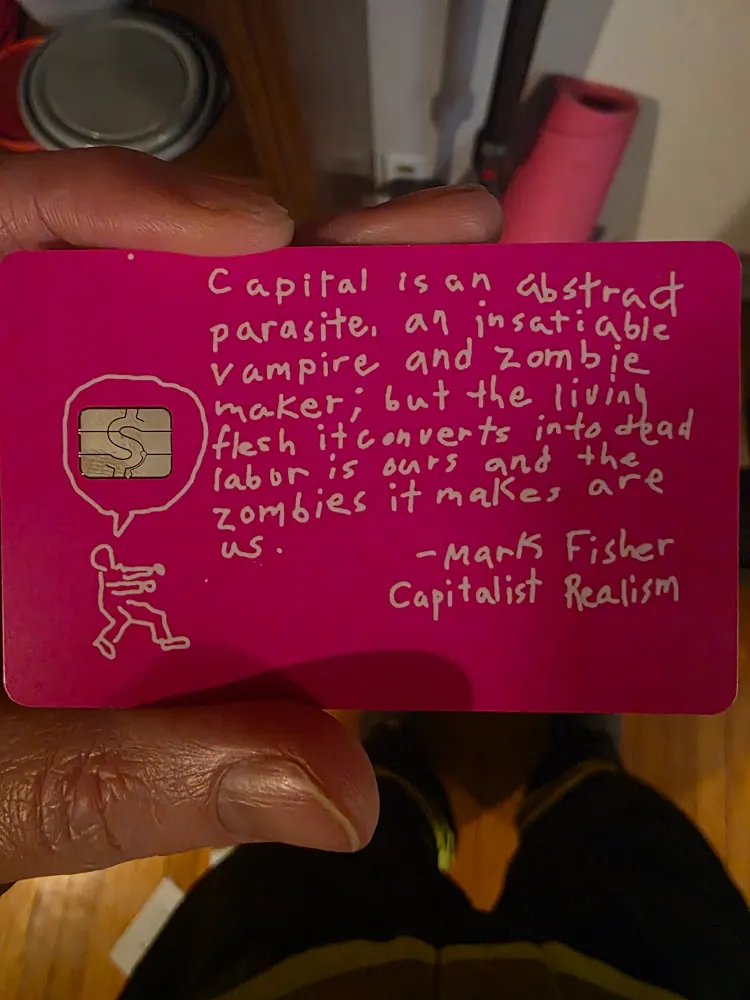 Capital is an abstract
parasite, an insatiable
vampire and zombie
maker; but the living
flesh it converts into dead
labor is ours and the
zombies it makes are
us.
-Mark Fisher
Capitalist Realism
$